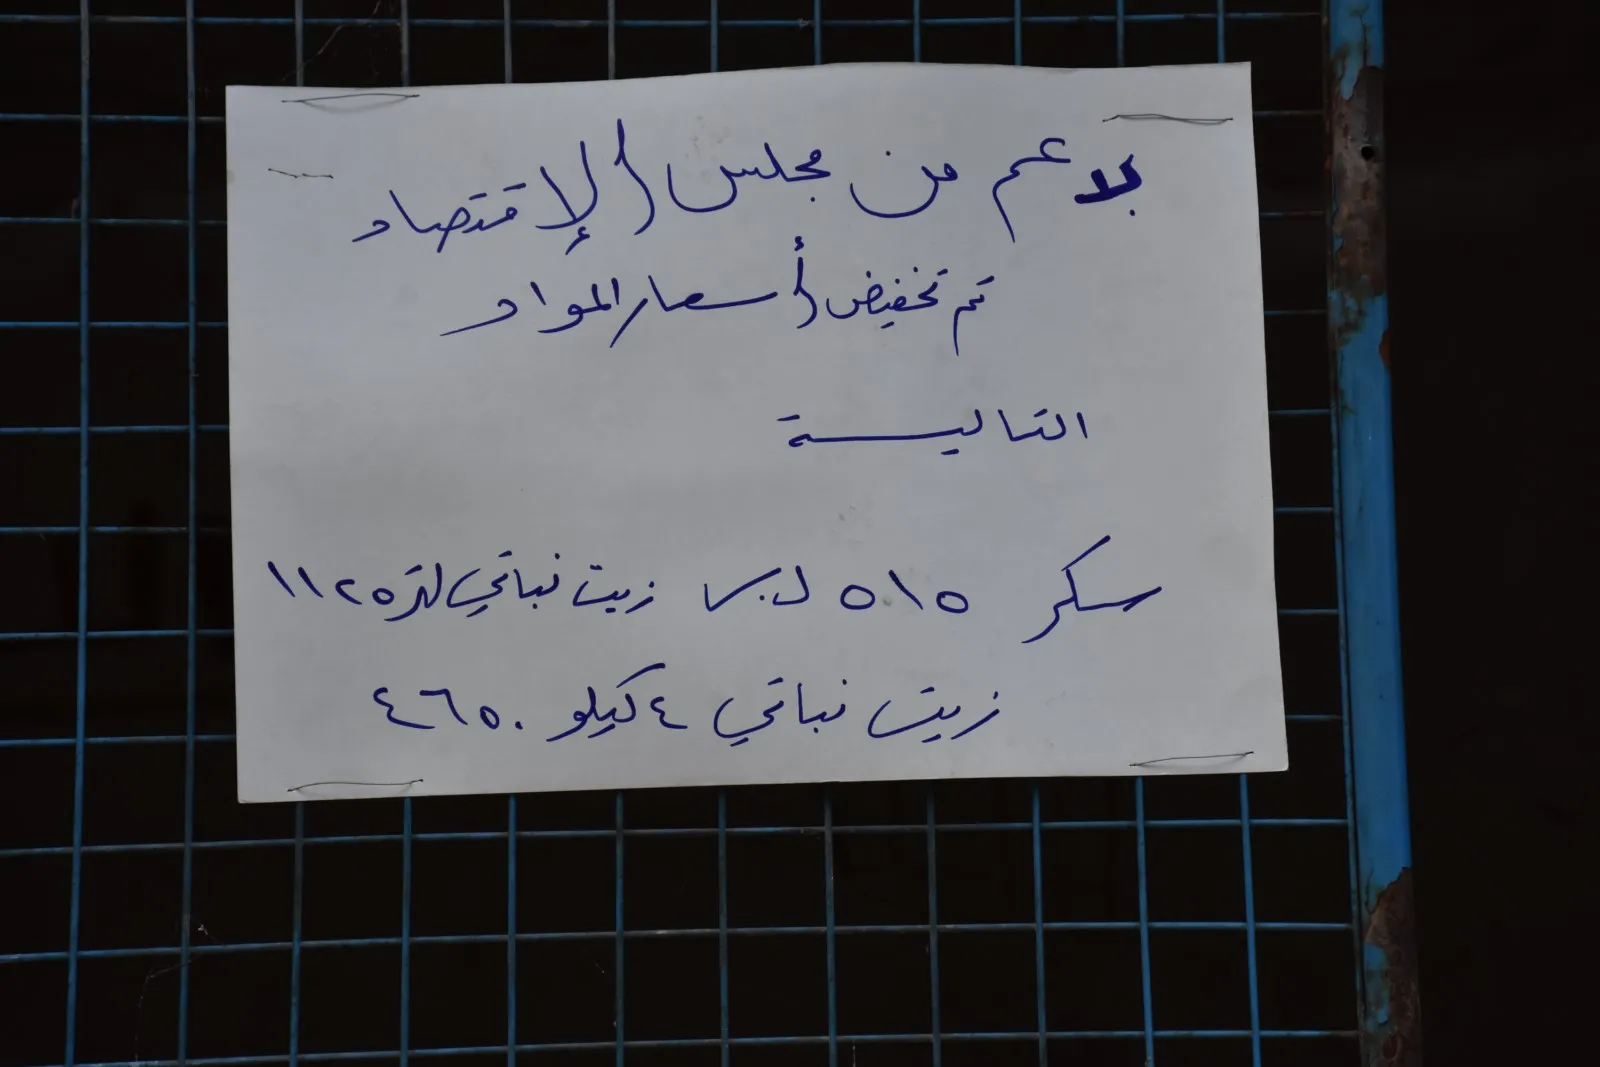 بدعم من مجلس الإقتصاد
تم تخفيض أسعار المواد
التالية
سكر ٥١٥ ل.س زيت نباتي لتر ١١٢٥
زيت نباتي ٤ كيلو ٤٦٥٠